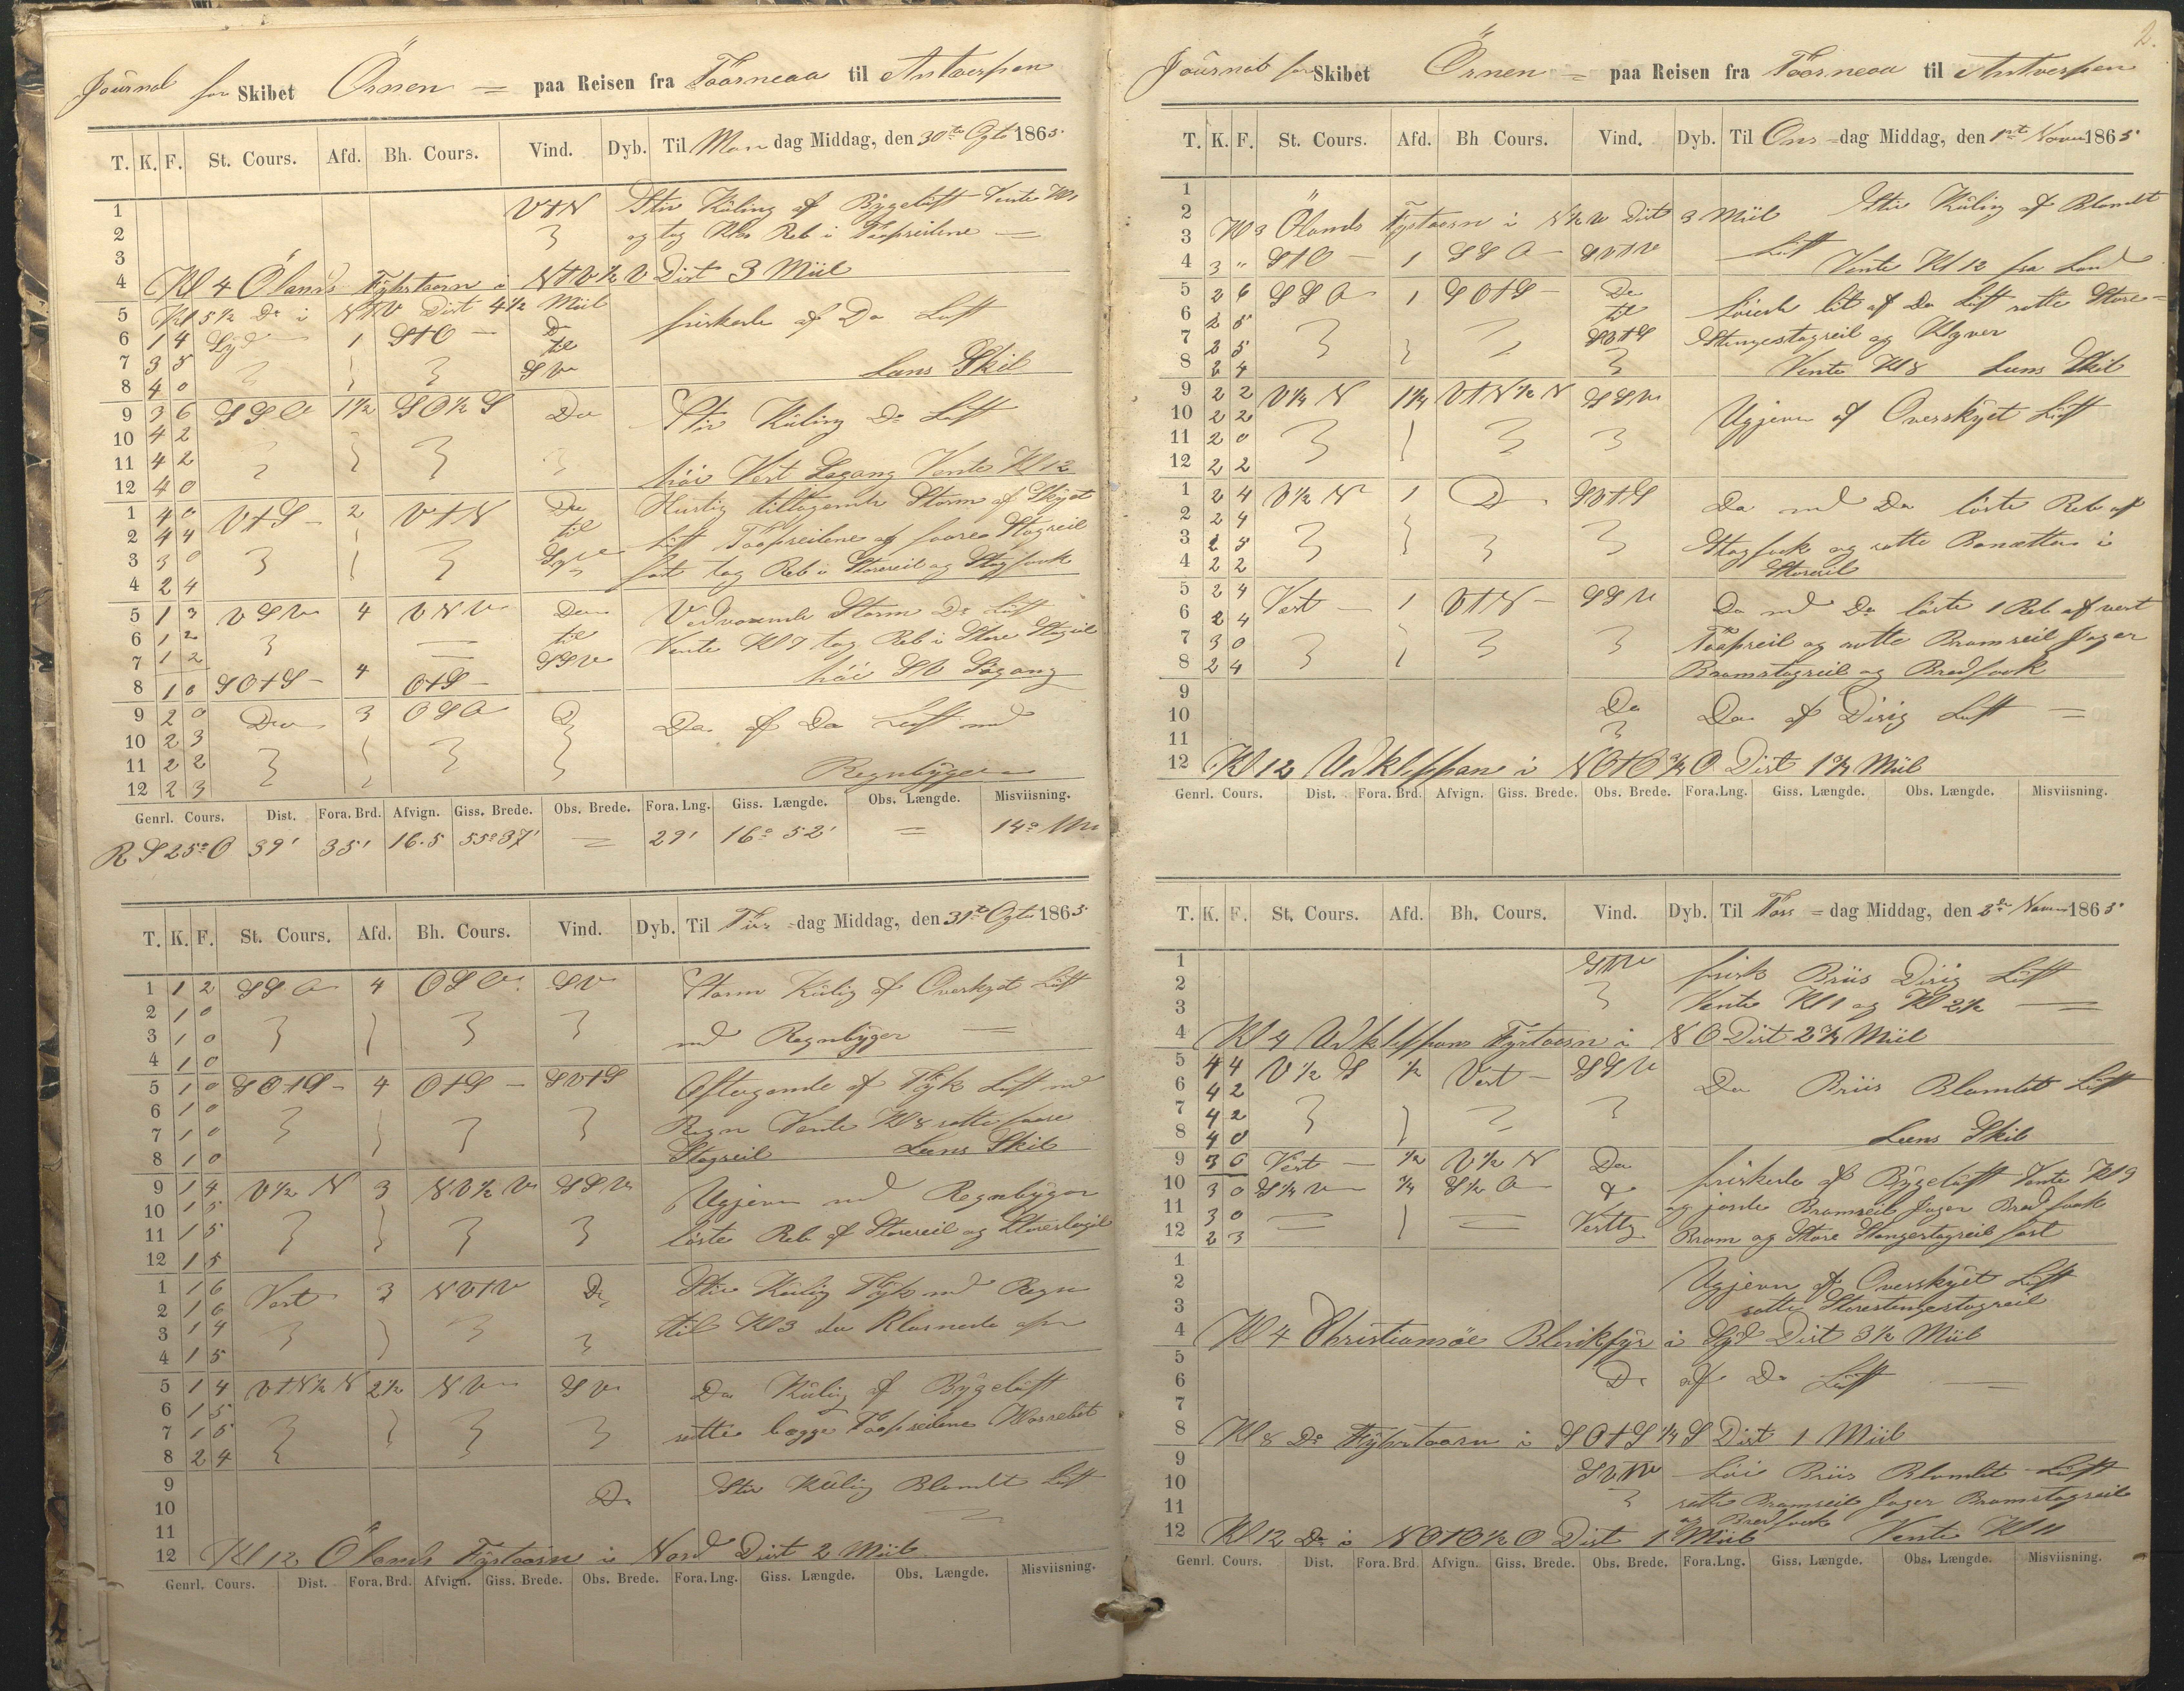 Journal for Skibet Örnen = paa Reisen fra Taarneaa til Antverpen
T. K. F. St. Cours. Afd. Bh. Cours. Vind. Dyb. Til Man dag Middag, den 30te Ogtr 1865
1 V t N Stiv Kuling af Bygeluft Vente Kl 1
2 og tog Kl Reb i Topseilene
3
4 Kl 4 Ölands Fyhrtaarn i N t V ½ V Dist 3 Miil
5 Kl 5 ½ Do i N t V Dist 4 ½ Miil
6 1 4 Syd 1 S t O Do friskede af Do Luft
7 3 5 til
8 4 0 S V Lens Skib
9 3 6 S S O 1½ S O ½ S Do Stiv Kuling Do Luft
10 4 2
11 4 2
12 4 0 høi Vest Søgang Vente Kl 12
1 4 0 V t S 2 V t N Do Hurtig tiltagende Storm af Skyet
2 4 4 til Luft Topseilene og Stagseil
3 3 0 fast tog Reb i Storseil og Stagfook
4 2 4
5 1 3 V S V 4 V N V Do Vedvarende Storm Do Luft
6 1 2 til Vente Kl 7 tog Reb i Store Stagseil
7 1 2 S S V
8 1 0 S O t S 4 O t S høi S V Søgang
9 2 0 Do 3 O S O D Do af Do Luft med
10 2 3
11 2 2
12 2 3 Regnbyger
Genrl. Cours. Dist. Fora. Brd. Afvign. Giss. Brede. Obs. Brede. Fora. Lng. Giss. Længde. Obs. Længde. Misviisning.
R S 25° O 39' 35' 16.5 55° 37' = 29' 16° 52' = 14° V
T. K. F. St. Cours. Afd. Bh. Cours. Vind. Dyb. Til Tirs =dag Middag, den 31te Ogtr 1865
1 1 2 S S O 4 O S O S V Storm Kuling af Overskyet Luft
2 1 0
3 1 0 med Regnbyger
4 1 0
5 1 0 S O t S 4 O t S S V t S Aftagende af Tyk Luft med
6 1 0 Regn Vente Kl 8 satte
7 1 0
8 1 0 Stagseil Lens Skib
9 1 4 V ½ N 3 N V ½ V S S V Ugjevn med Regnbyger
10 1 5
11 1 5 løste Reb af Storseil og
12 1 5
1 1 6 Vest 3 N V t V Do Stiv Kuling Tyk med Regn
2 1 6
3 1 4 til Kl 3 da Klarnede
4 1 5
5 1 4 V t N ½ N 2½ N V S V Do Kuling af Bygeluft
6 1 5
7 1 5 satte begge Topseilene
8 2 4
9 Do Stiv Kuling Blandet Luft
10
11
12 Kl 12 Ölands Fyrtaarn i Nord Dist 2 Miil
Genrl. Cours. Dist. Fora. Brd. Afvign. Giss. Brede. Obs. Brede. Fora. Lng. Giss. Længde. Obs. Længde. Misviisning.
2.
Journal for Skibet Örnen = paa Reisen fra Taarneaa til Antverpen
T. K. F. St. Cours. Afd. Bh Cours. Vind. Dyb. Til Ons =dag Middag, den 1ste Novem 1865
1 Stiv Kuling af Blandt
2 Kl 3 Ölands Fyrtaarn i N ½ V Dist 3 Miil
3 Luft
4 3 " S t O 1 S S O S V t V Vente Kl 12 fra Land
5 2 6 S S O 1 S O t S Do Løiede lit af Do Luft satte Store=
6 2 5 til
7 2 5 S V t S Stengestagseil og Klyver
8 2 4 Vente Kl 8 Lens Skib
9 2 2 V ¼ N 1¼ V t N ½ N S S V Ugjevn af Overskyet Luft
10 2 2
11 2 0
12 2 2
1 2 4 V ½ N 1 D S V t S Do med Do løste Reb af
2 2 4
3 2 5 Stagfook og satte Bonetten i
4 2 2 Storseil
5 2 4 Vest 1 V t N S S V Do med Do løste 1 Reb af vert
6 2 4
7 3 0 Topseil og satte Bramseil Jager
8 2 4 Bramstagseil og Bredfook
9 Do
10 Do af Disig Luft
11
12 Kl 12 Utklippan i N O t O ¾ O Dist 1¾ Miil
Genrl. Cours. Dist. Fora. Brd. Afvign. Giss. Brede. Obs. Brede. Fora.Lng. Giss. Længde. Obs. Længde. Misviisning.
T. K. F. St. Cours. Afd. Bh. Cours. Vind. Dyb. Til Tors =dag Middag, den 2den Novem 1865
1 frisk Briis Disig Luft
2
3 Vente Kl 1 og Kl 2½
4 Kl 4 Utklippans Fyrtaarn i N O Dist 2¾ Miil
5 4 4 V ½ S ½ Vest S S V
6 4 2 Do Briis Blandet Luft
7 4 2
8 4 0 Lens Skib
9 3 6 Vest ½ V ½ N Do friskede af Bygeluft Vente Kl 9
10 3 0 S ¼ V ¾ S ½ O &
11 3 0 og gjorde Bramseil Jager Bredfook
12 2 3 Vestlig Bram og Store Stengestagseil fast
1
2 Ugjevn af Overskyet Luft
3 satte Storestengestagseil
4 Kl 4 Christiansøe Blinkfyr i Syd Dist 3½ Miil
5
6 Do af Do Luft
7
8 Kl 8 Do Fyhrtaarn i S O t S ¼ S Dist 1 Miil
9 Løi Briis Blandet Luft
10
11 satte Bramseil Jager Bramstagseil
og Bredfook
12 Kl 12 Do i N O t O ½ O Dist 1 Miil Vente Kl 11
Genrl. Cours. Dist. Fora. Brd. Afvign. Giss. Brede. Obs. Brede. Fora.Lng. Giss. Længde. Obs. Længde. Misviisning.